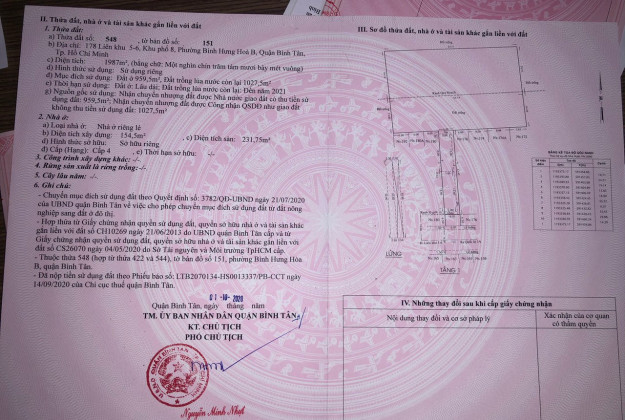 II. Thửa đất, nhà ở và tài sản khác gắn liền với đất
1. Thửa đất:
a) Thửa đất số: 548 , tờ bản đồ số: 151
b) Địa chỉ: 178 Liên khu 5-6, Khu phố 8, Phường Bình Hưng Hoà B, Quận Bình Tân,
Tp. Hồ Chí Minh
c) Diện tích: 1987m², (bằng chữ: Một nghìn chín trăm tám mươi bảy mét vuông)
d) Hình thức sử dụng: Sử dụng riêng
đ) Mục đích sử dụng: Đất ở 959,5m², Đất trồng lúa nước còn lại 1027,5m²
e) Thời hạn sử dụng: Đất ở: Lâu dài; Đất trồng lúa nước còn lại: Đến năm 2021
g) Nguồn gốc sử dụng: Nhận chuyển nhượng đất được Nhà nước giao đất có thu tiền sử
dụng đất: 959,5m²; Nhận chuyển nhượng đất được Công nhận QSDĐ như giao đất
không thu tiền sử dụng đất: 1027,5m²
2. Nhà ở:
a) Loại nhà ở: Nhà ở riêng lẻ
b) Diện tích xây dựng: 154,5m² , c) Diện tích sàn: 231,75m²
d) Hình thức sở hữu: Sở hữu riêng
đ) Cấp (Hạng): Cấp 4 , e) Thời hạn sở hữu: -/-
3. Công trình xây dựng khác: -/-
4. Rừng sản xuất là rừng trồng: -/-
5. Cây lâu năm: -/-
6. Ghi chú:
- Chuyển mục đích sử dụng đất theo Quyết định số: 3782/QĐ-UBND ngày 21/07/2020
của UBND quận Bình Tân về việc cho phép chuyển mục đích sử dụng đất từ đất nông
nghiệp sang đất ở đô thị.
- Hợp thửa từ Giấy chứng nhận quyền sử dụng đất, quyền sở hữu nhà ở và tài sản khác
gắn liền với đất số CH10269 ngày 21/06/2013 do UBND quận Bình Tân cấp và từ
Giấy chứng nhận quyền sử dụng đất, quyền sở hữu nhà ở và tài sản khác gắn liền với
đất số CS26070 ngày 04/05/2020 do Sở Tài nguyên và Môi trường TpHCM cấp.
- Thuộc thửa 548 (hợp từ thửa 422 và 544), tờ bản đồ số 151, phường Bình Hưng Hòa
B, quận Bình Tân.
- Đã nộp tiền sử dụng đất theo Phiếu báo số: LTB2070134-HS0013337/PB-CCT ngày
14/09/2020 của Chi cục thuế quận Bình Tân.
01-10-2020
Quận Bình Tân, ngày tháng năm
TM. ỦY BAN NHÂN DÂN QUẬN BÌNH TÂN
KT. CHỦ TỊCH
PHÓ CHỦ TỊCH
Nguyễn Minh Nhựt
III. Sơ đồ thửa đất, nhà ở và tài sản khác gắn liền với đất
LỬNG
TẦNG 1
IV. Những thay đổi sau khi cấp giấy chứng nhận
Nội dung thay đổi và cơ sở pháp lý
Xác nhận của cơ quan
có thẩm quyền